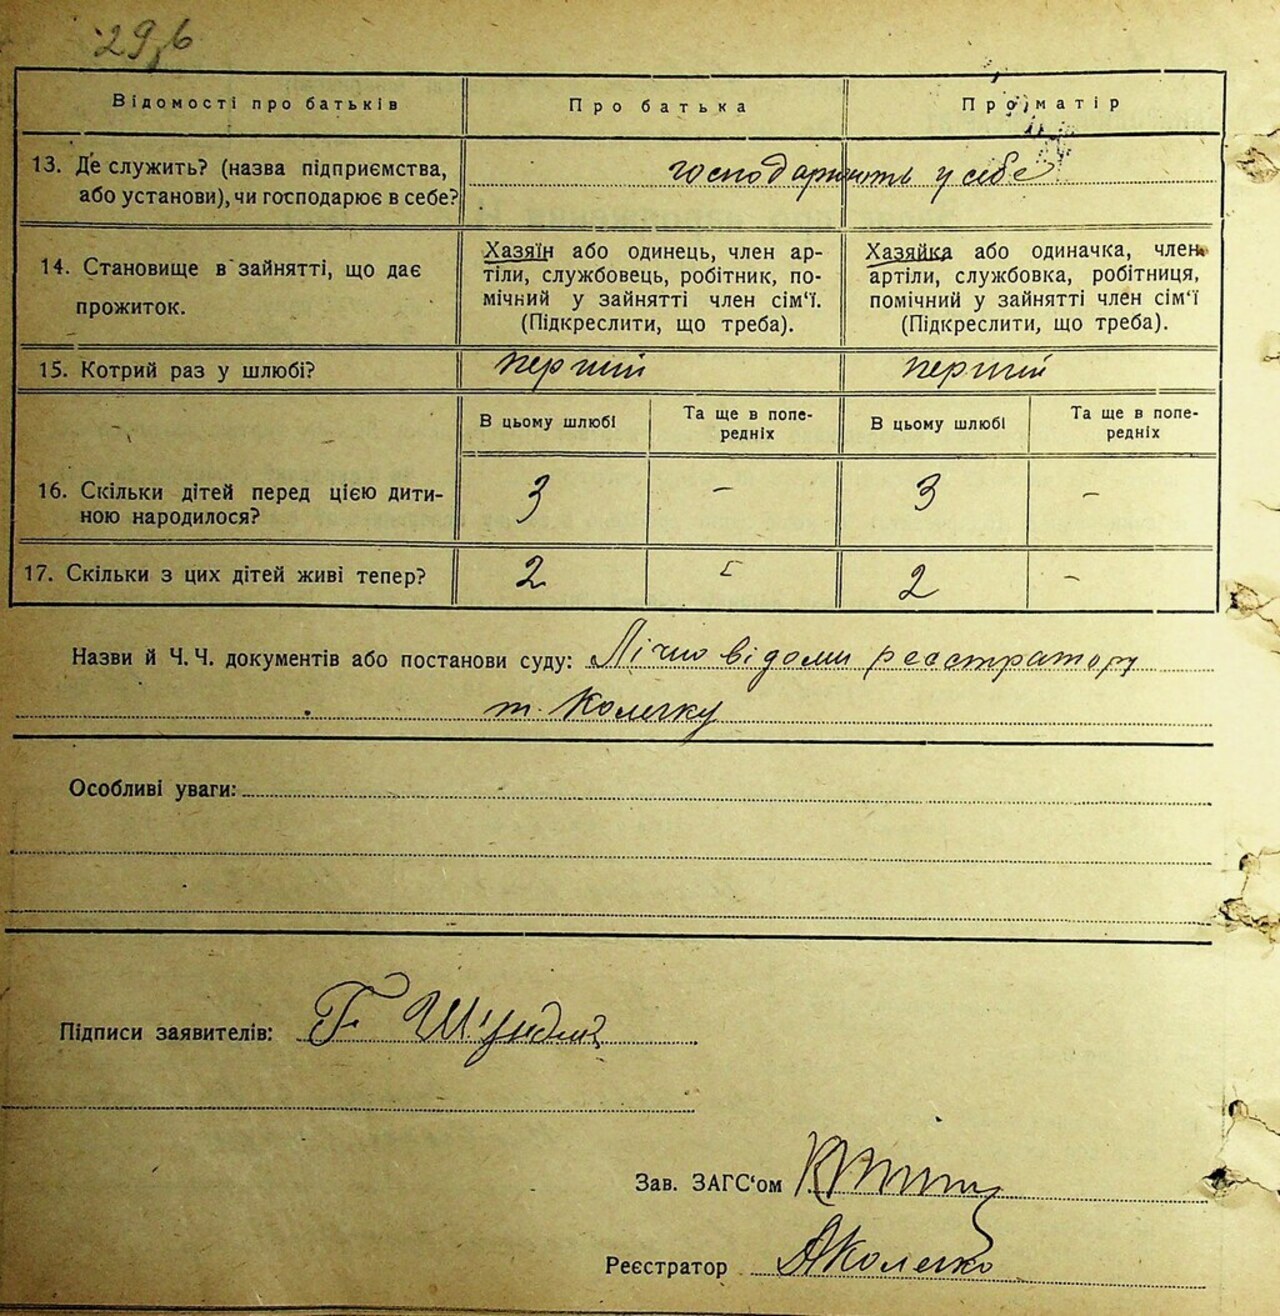 29,б
Відомості про батьків
Про батька
Про матір
13. Де служить? (назва підприємства,
або установи), чи господарює в себе?
господарюють у себе
14. Становище в зайнятті, що дає
прожиток.
Хазяїн або одинець, член ар-
тіли, службовець, робітник, по-
мічний у зайнятті член сім‘ї.
(Підкреслити, що треба).
Хазяйка або одиначка, член
артіли, службовка, робітниця,
помічний у зайнятті член сім‘ї
(Підкреслити, що треба).
15. Котрий раз у шлюбі?
перший
перший
В цьому шлюбі
Та ще в попе-
редніх
В цьому шлюбі
Та ще в попе-
редніх
16. Скільки дітей перед цією дити-
ною народилося?
3
–
3
–
17. Скільки з цих дітей живі тепер?
2
2
–
Назви й Ч. Ч. документів або постанови суду: Лічно відоми реєстратору
т. Колечку
Особливі уваги:
Підписи заявителів: Г
Зав. ЗАГС‘ом
Реєстратор АКолечко